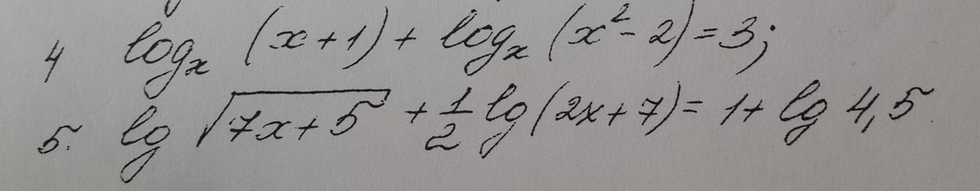 4 logₓ (x+1) + logₓ (x²-2) = 3;
5. lg √(7x+5) + 1/2 lg (2x+7) = 1 + lg 4,5